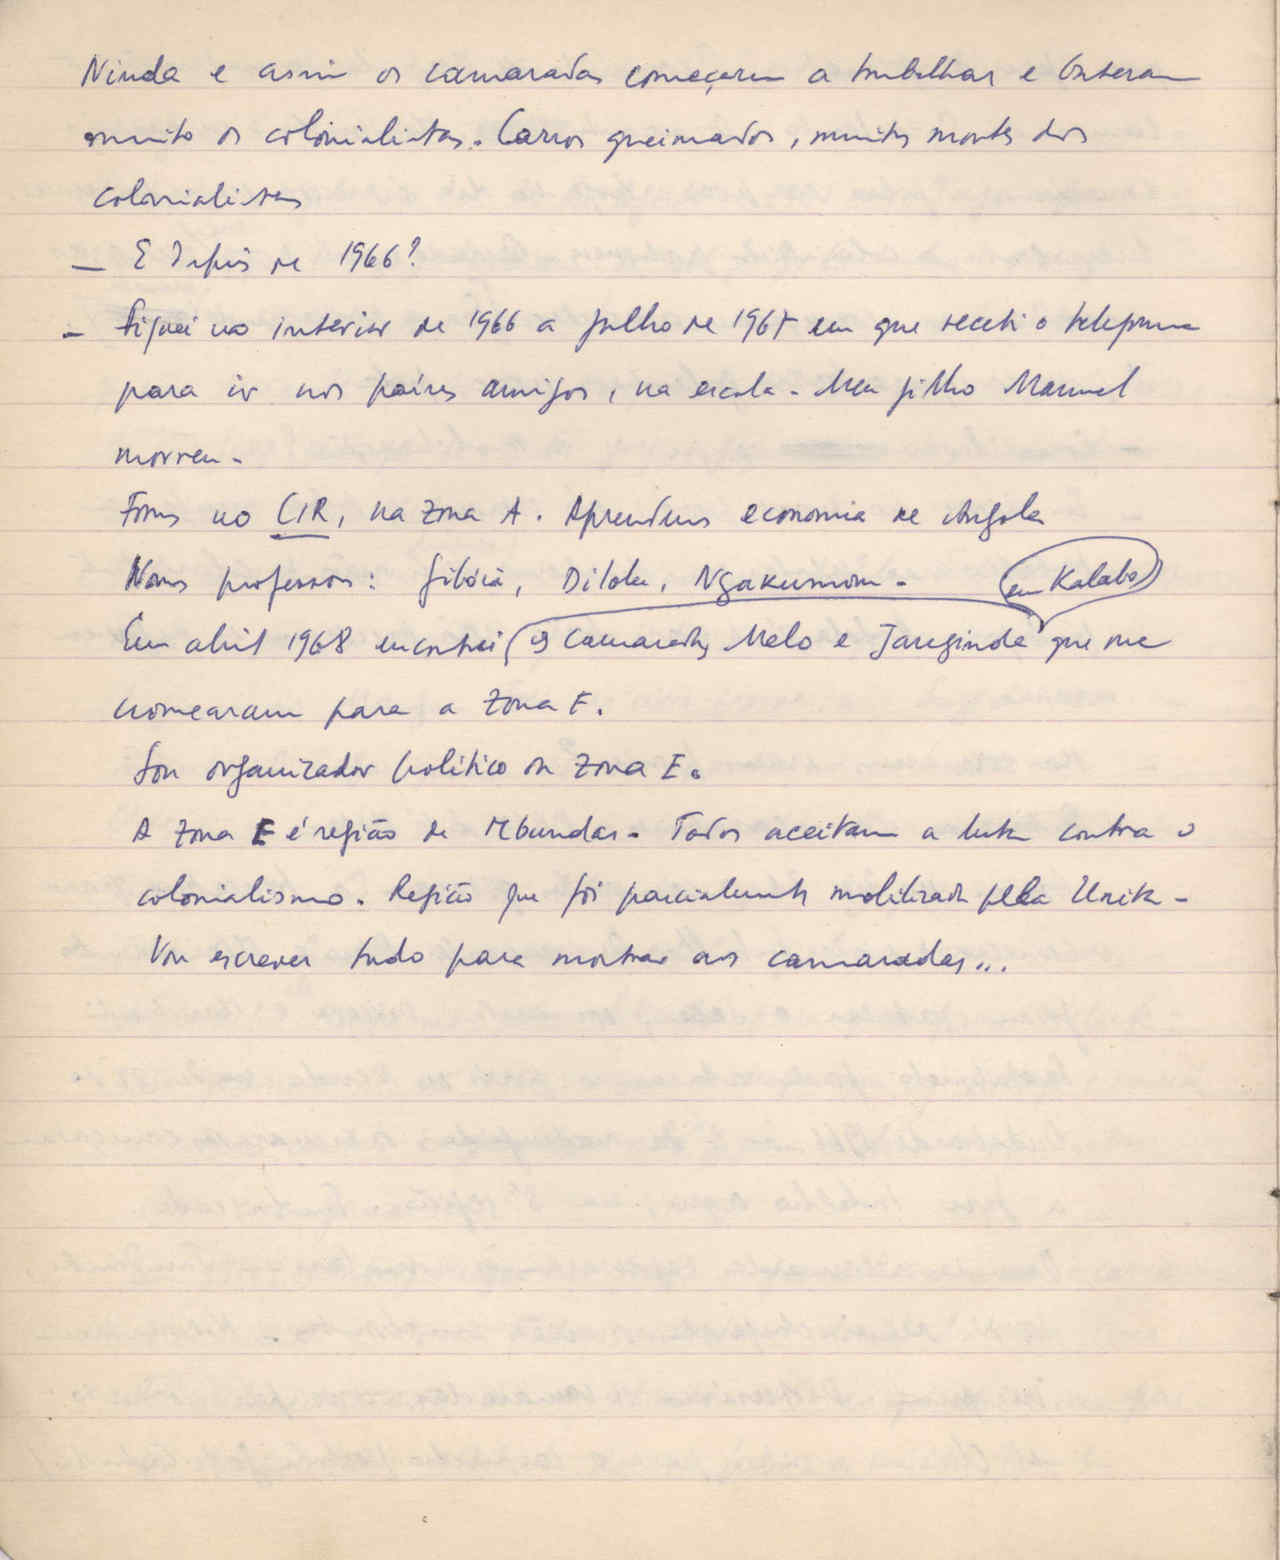 Ninda e assim os camaradas começaram a trabalhar e bateram
muito os colonialistas. Carros queimados, muitos mortos dos
colonialistas
— E depois de 1966?
– Fiquei no interior de 1966 a Julho de 1967 em que recebi o telegrama
para ir nos países amigos, na escola. Meu filho Manuel
morreu.
Fomos no CIR, na zona A. Aprendemos economia de Angola
Nomes professores: Jibóia, Dilolu, Ngakumona. (em Kalabo)
Em abril 1968 encontrei os camaradas Melo e Janginda que me
nomearam para a zona E.
Sou organizador político da zona E.
A zona E é região de Mbundas. Todos aceitam a luta contra o
colonialismo. Região que foi parcialmente mobilizada pela Unita.
Vou escrever tudo para mostrar aos camaradas...